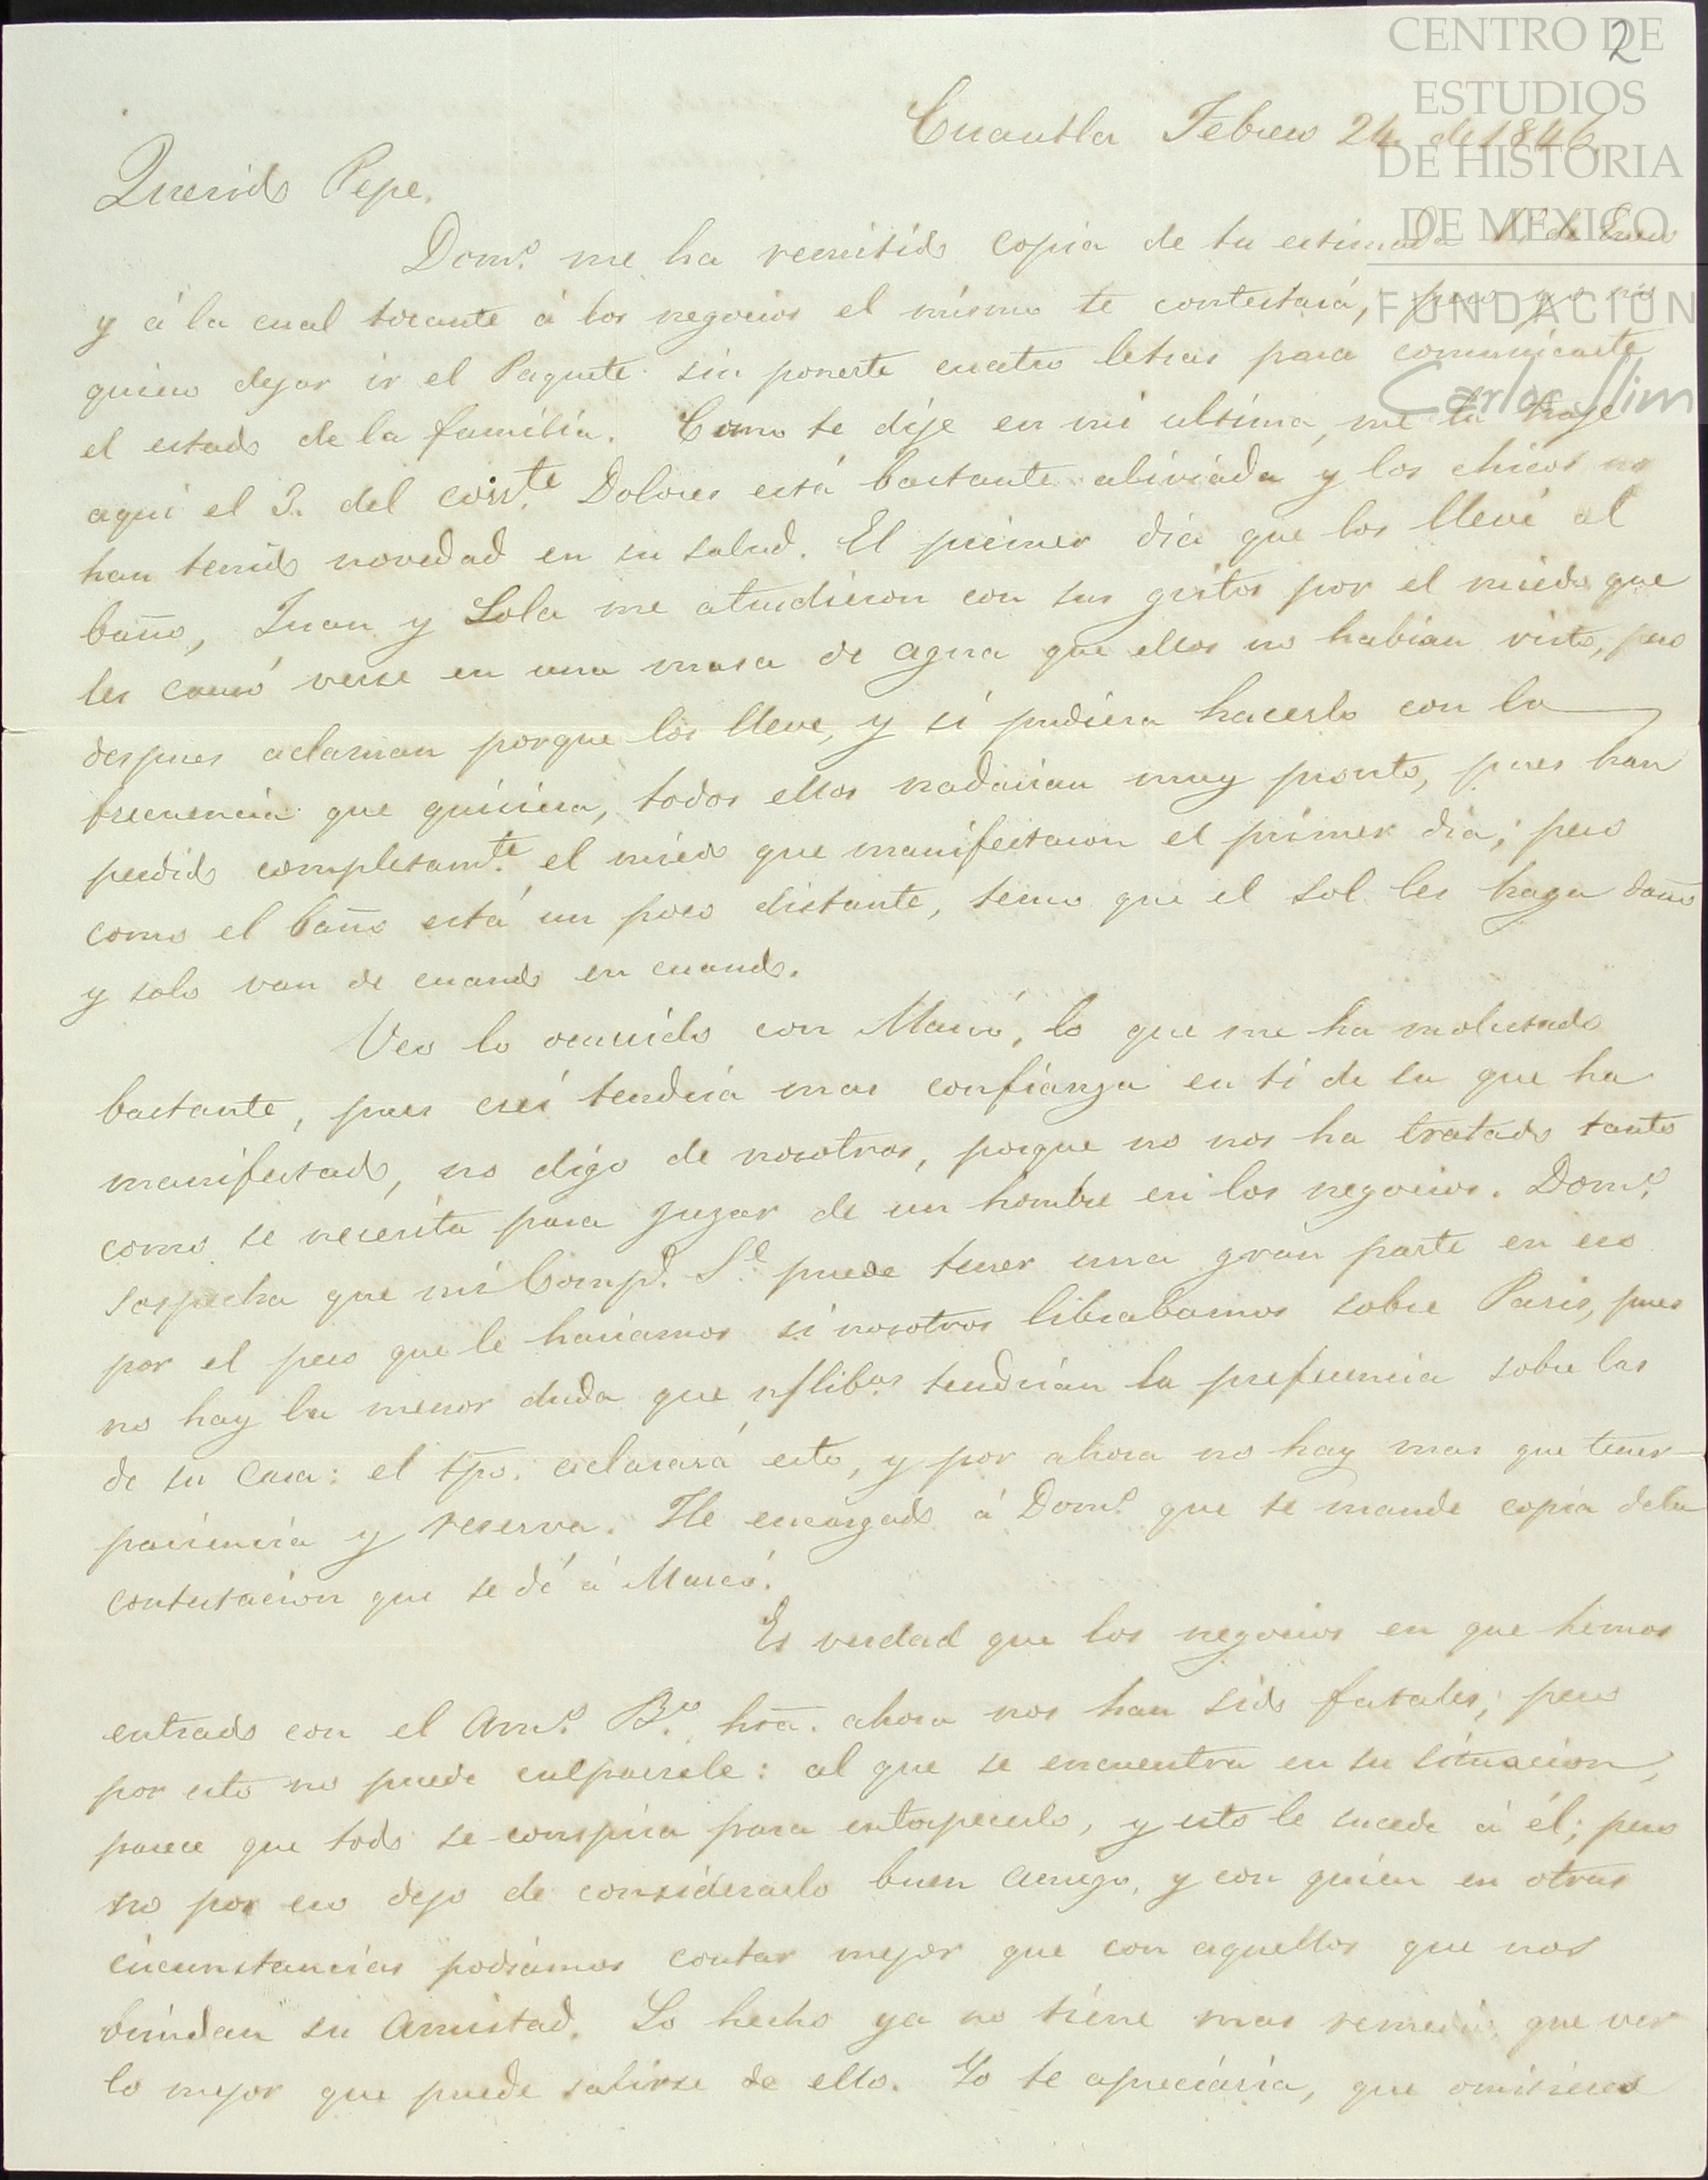 2
CENTRO DE
ESTUDIOS
DE HISTORIA
DE MEXICO
FUNDACIÓN
Carlos Slim
Cuautla Febrero 24 de 1846.
Querido Pepe.
Dom.º me ha remitido copia de tu estimada de Enero
y á la cual tocante á los negocios el mismo te contestará, pero yo no
quiero dejar ir el Paquete sin ponerte cuatro letras para comunicarte
el estado de la familia. Como te dije en mi ultima, me la traje
aqui el 3. del corr.te Dolores está bastante aliviada y los chicos no
han tenido novedad en su salud. El primer dia que los llevé al
baño, Juan y Lola me aturdieron con sus gritos por el miedo que
les causó verse en una masa de agua que ellos no habian visto, pero
despues aclaman porque los lleve, y si pudiera hacerlo con la
frecuencia que quisiera, todos ellos nadarian muy pronto, pues han
perdido completam.te el miedo que manifestaron el primer dia; pero
como el baño está un poco distante, temo que el sol les haga daño
y solo van de cuando en cuando.
Veo lo ocurrido con Marcó, lo que me ha molestado
bastante, pues crei tendria mas confianza en ti de la que ha
manifestado, no digo de nosotros, porque no nos ha tratado tanto
como se necesita para juzgar de un hombre en los negocios. Dom.º
sospecha que mi Comp.e S.l puede tener una gran parte en eso
por el peso que le hariamos si nosotros librabamos sobre Paris, pues
no hay la menor duda que n/lib.as tendrian la preferencia sobre las
de su casa: el tpo. aclarará esto, y por ahora no hay mas que tener
paciencia y reserva. He encargado á Dom.º que te mande copia dela
contestacion que se dé á Marcó.
Es verdad que los negocios en que hemos
entrado con el Am.º B.º hta. ahora nos han sido fatales; pero
por esto no puede culparsele: al que se encuentra en su situacion,
parece que todo se conspira para entorpecerlo, y esto le sucede á él; pero
no por eso dejo de considerarlo buen amigo, y con quien en otras
circunstancias podriamos contar mejor que con aquellos que nos
brindan su amistad. Lo hecho ya no tiene mas remedio que ver
lo mejor que puede salirse de ello. Yo te apreciaria, que omitieras